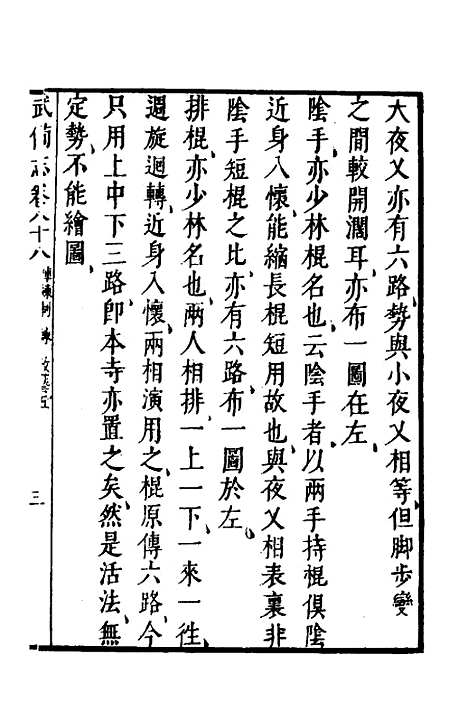 大夜叉亦有六路勢與小夜叉相等但脚步變
之間較開濶耳亦布一圖在左
陰手亦少林棍名也云陰手者以兩手持棍俱陰
近身入懷能縮長棍短用故也與夜叉相表裏非
陰手短棍之比亦有六路布一圖於左
排棍亦少林名也兩人相排一上一下一來一徃
週旋迴轉近身入懷兩相演用之棍原傳六路今
只用上中下三路卽本寺亦置之矣然是活法無
定勢不能繪圖
武備志卷八十八 陣練制 練 教藝五 三